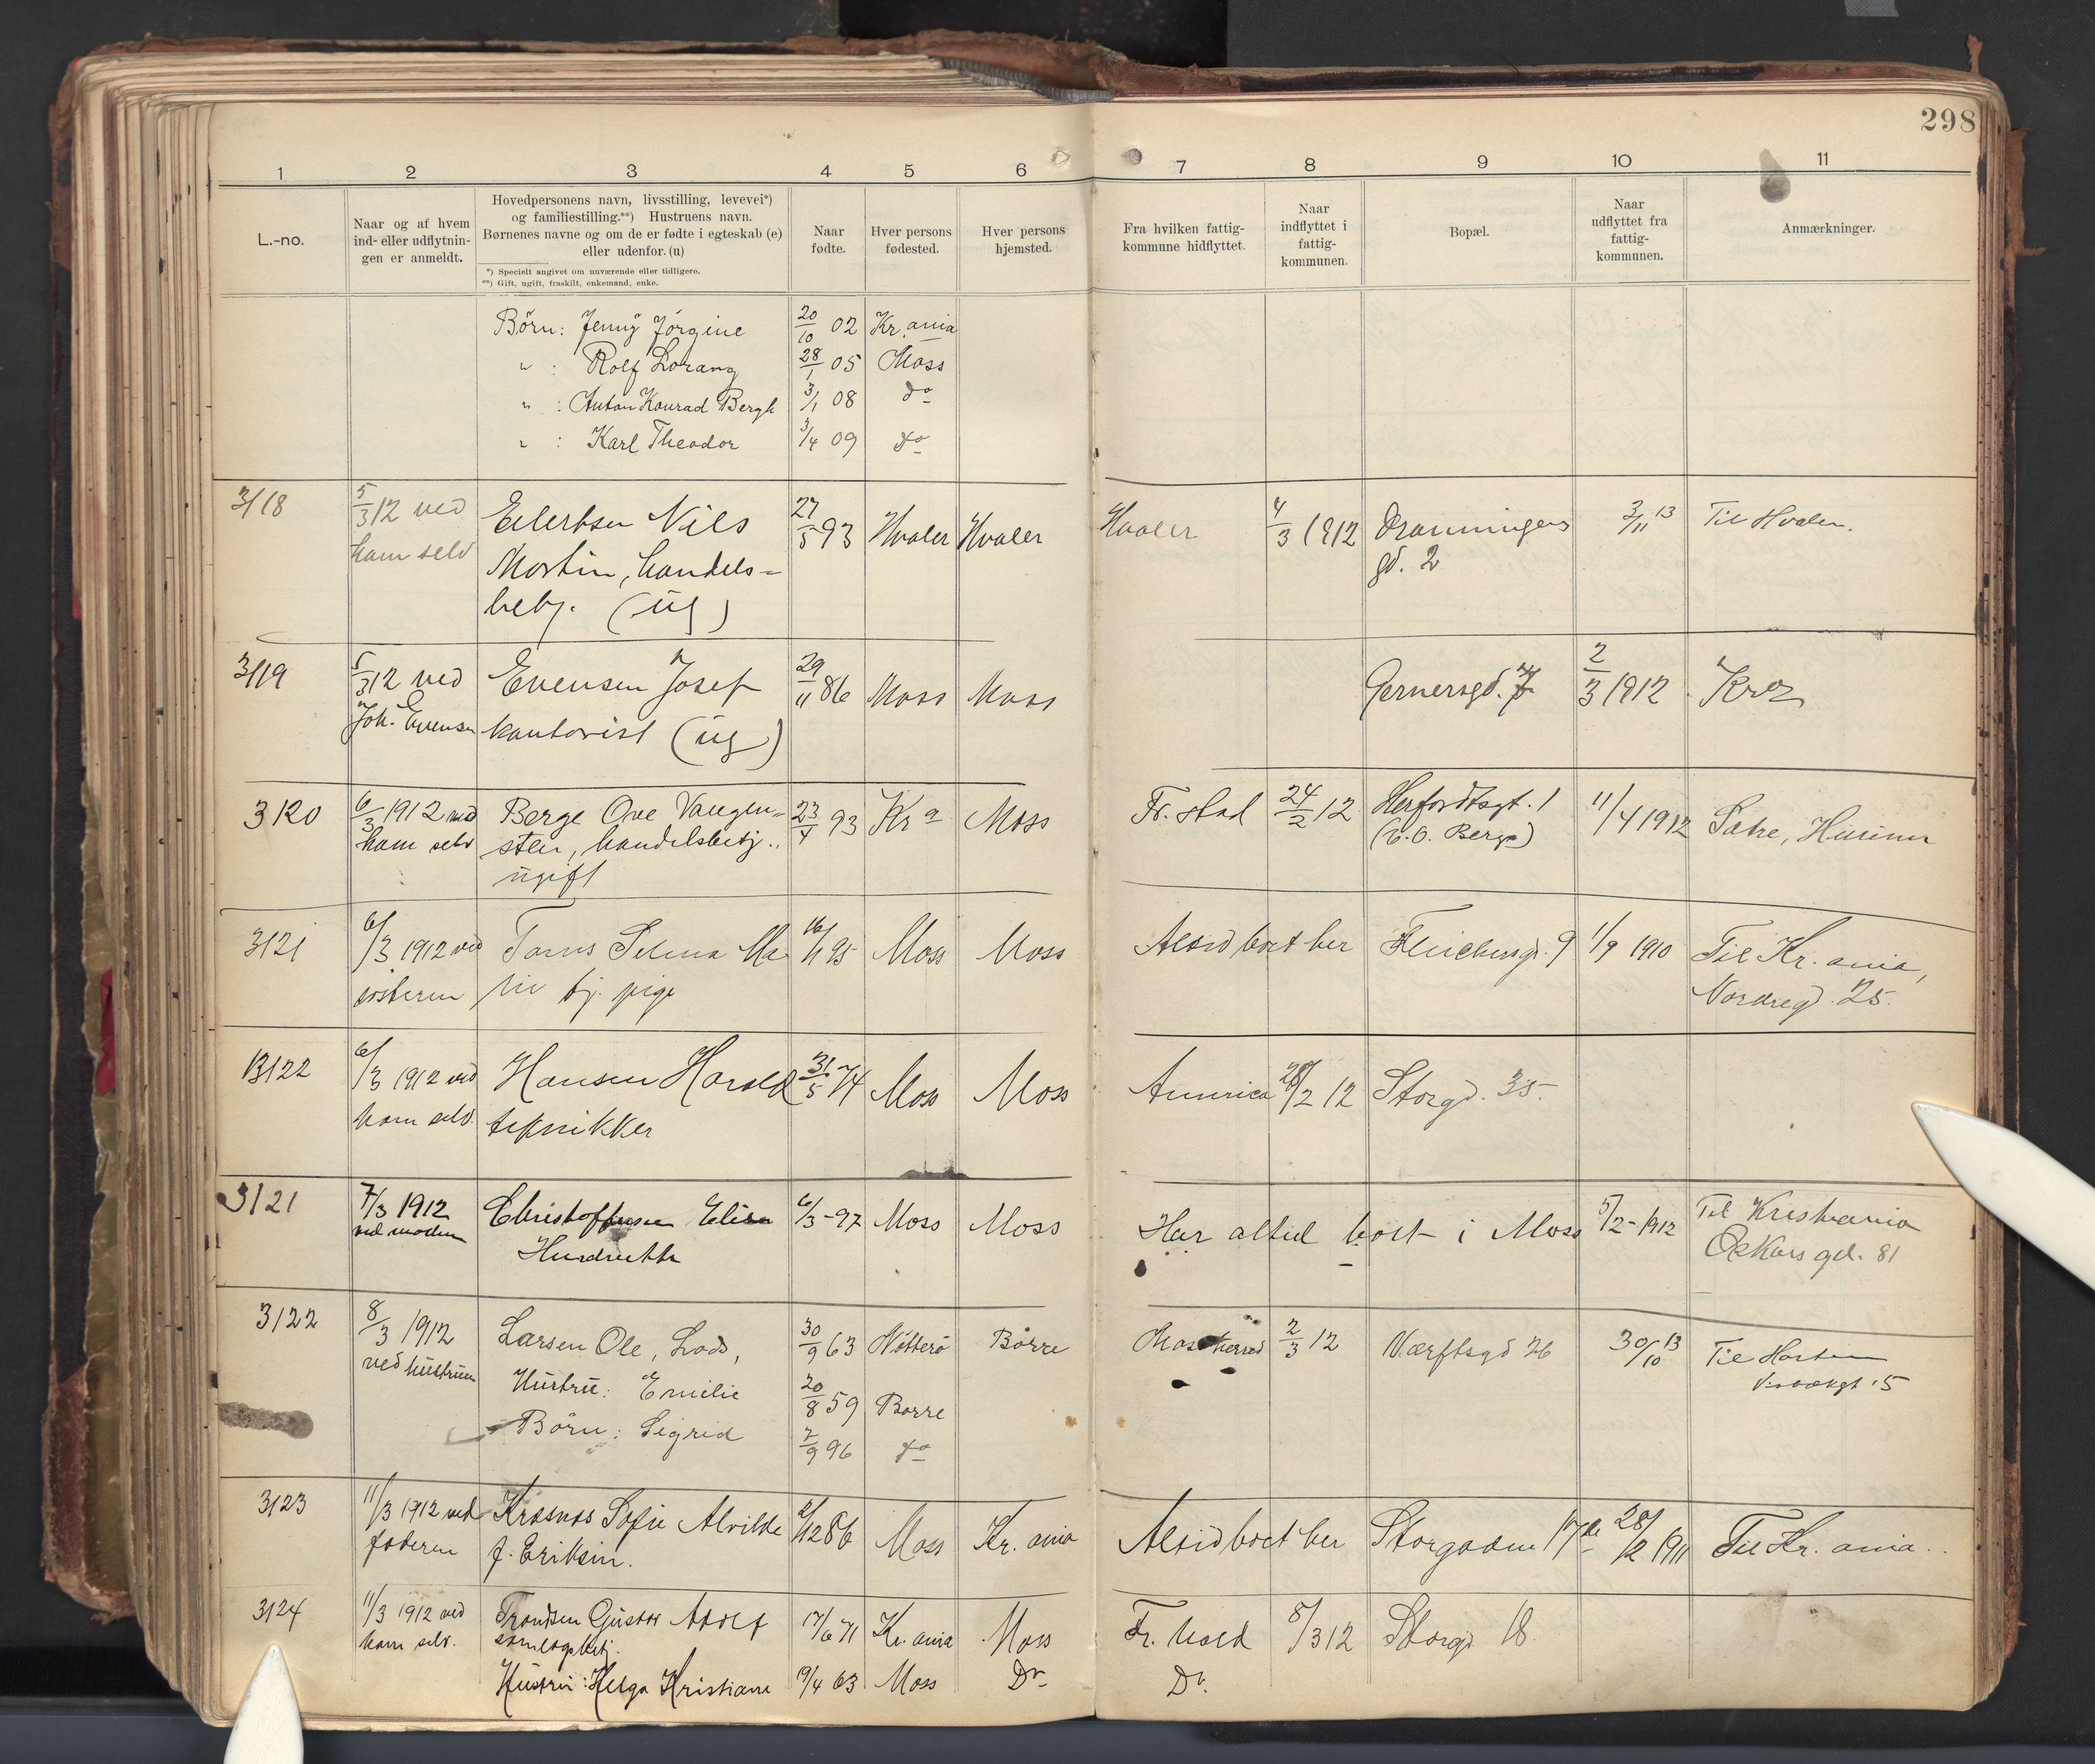 298
1 2 3 4 5 6 7 8 9 10 11
L.-no.
Naar og af hvem
ind- eller udflytnin-
gen er anmeldt.
Hovedpersonens navn, livsstilling, levevei*)
og familiestilling.**) Hustruens navn.
Børnenes navne og om de er fødte i egteskab (e)
eller udenfor. (u)
*) Specielt angivet om nuværende eller tidligere.
**) Gift, ugift, fraskilt, enkemand, enke.
Naar
fødte.
Hver persons
fødested.
Hver persons
hjemsted.
Fra hvilken fattig-
kommune hidflyttet.
Naar
indflyttet i
fattig-
kommunen.
Bopæl.
Naar
udflyttet fra
fattig-
kommunen.
Anmærkninger.
Børn: Jenny Jørgine 20/10 02 Kr.ania
" : Rolf Lorang 28/1 05 Moss
" : Anton Konrad Bergh 3/1 08 do
" : Karl Theodor 3/4 09 do
3118 5/3 12 ved Eilertsen Nils 27/5 93 Hvaler Hvaler Hvaler 4/3 1912 Dronningens 3/11 13 Til Hvaler.
ham selv Martin, handels= gd. 2
betj. (ug)
3119 5/3 12 ved Evensen Josef 29/11 86 Moss Moss Gernersgd. 2/3 1912 Kra
Joh. Evensen kontorist (ug)
3120 6/3 1912 ved Berge Ove Vangen= 23/4 93 Kra Moss Fr.stad 24/2 12 Herfordtsgt. 1 11/4 1912 Sætre, Hurum
ham selv sten, handelsbetj., (O. Berge)
ugift
3121 6/3 1912 ved Selma Ma 16/11 95 Moss Moss Altid boet her 9 1/9 1910 Til Kr.ania,
søsteren rie tj. pige Nordregd. 25.
3122 6/3 1912 ved Hansen Harald 31/5 74 Moss Moss America 28/2 12 Storgd. 35.
ham selv. tekniker
3121 7/3 1912 Christoffersen Elise 6/3-97 Moss Moss Har altid boet i Moss 5/2-1912 Til Kristiania
ved moderen Oskars gd. 81
3122 8/3 1912 Larsen Ole, Lods, 30/9 63 Nøtterø Borre Moss herred 2/3 12 Værftsgd 26 30/10 13 Til Horten
ved hustruen Hustru: Emilie 20/8 59 Borre 15
Børn: Sigrid 7/9 96 do
3123 11/3 1912 ved Sofie Alvilde 2/12 86 Moss Kr.ania Altid boet her Storgaden 17 28/2 1911 Til Kr.ania.
faderen f. Eriksen.
3124 11/3 1912 ved Trondsen Gustav Adolf 17/6 71 Kr.ania Moss Fr.hald 8/3 12 Storgd 18.
ham selv. samlagsbetj.
Hustru: Helga Kristiane 19/4 63 Moss Do Do.